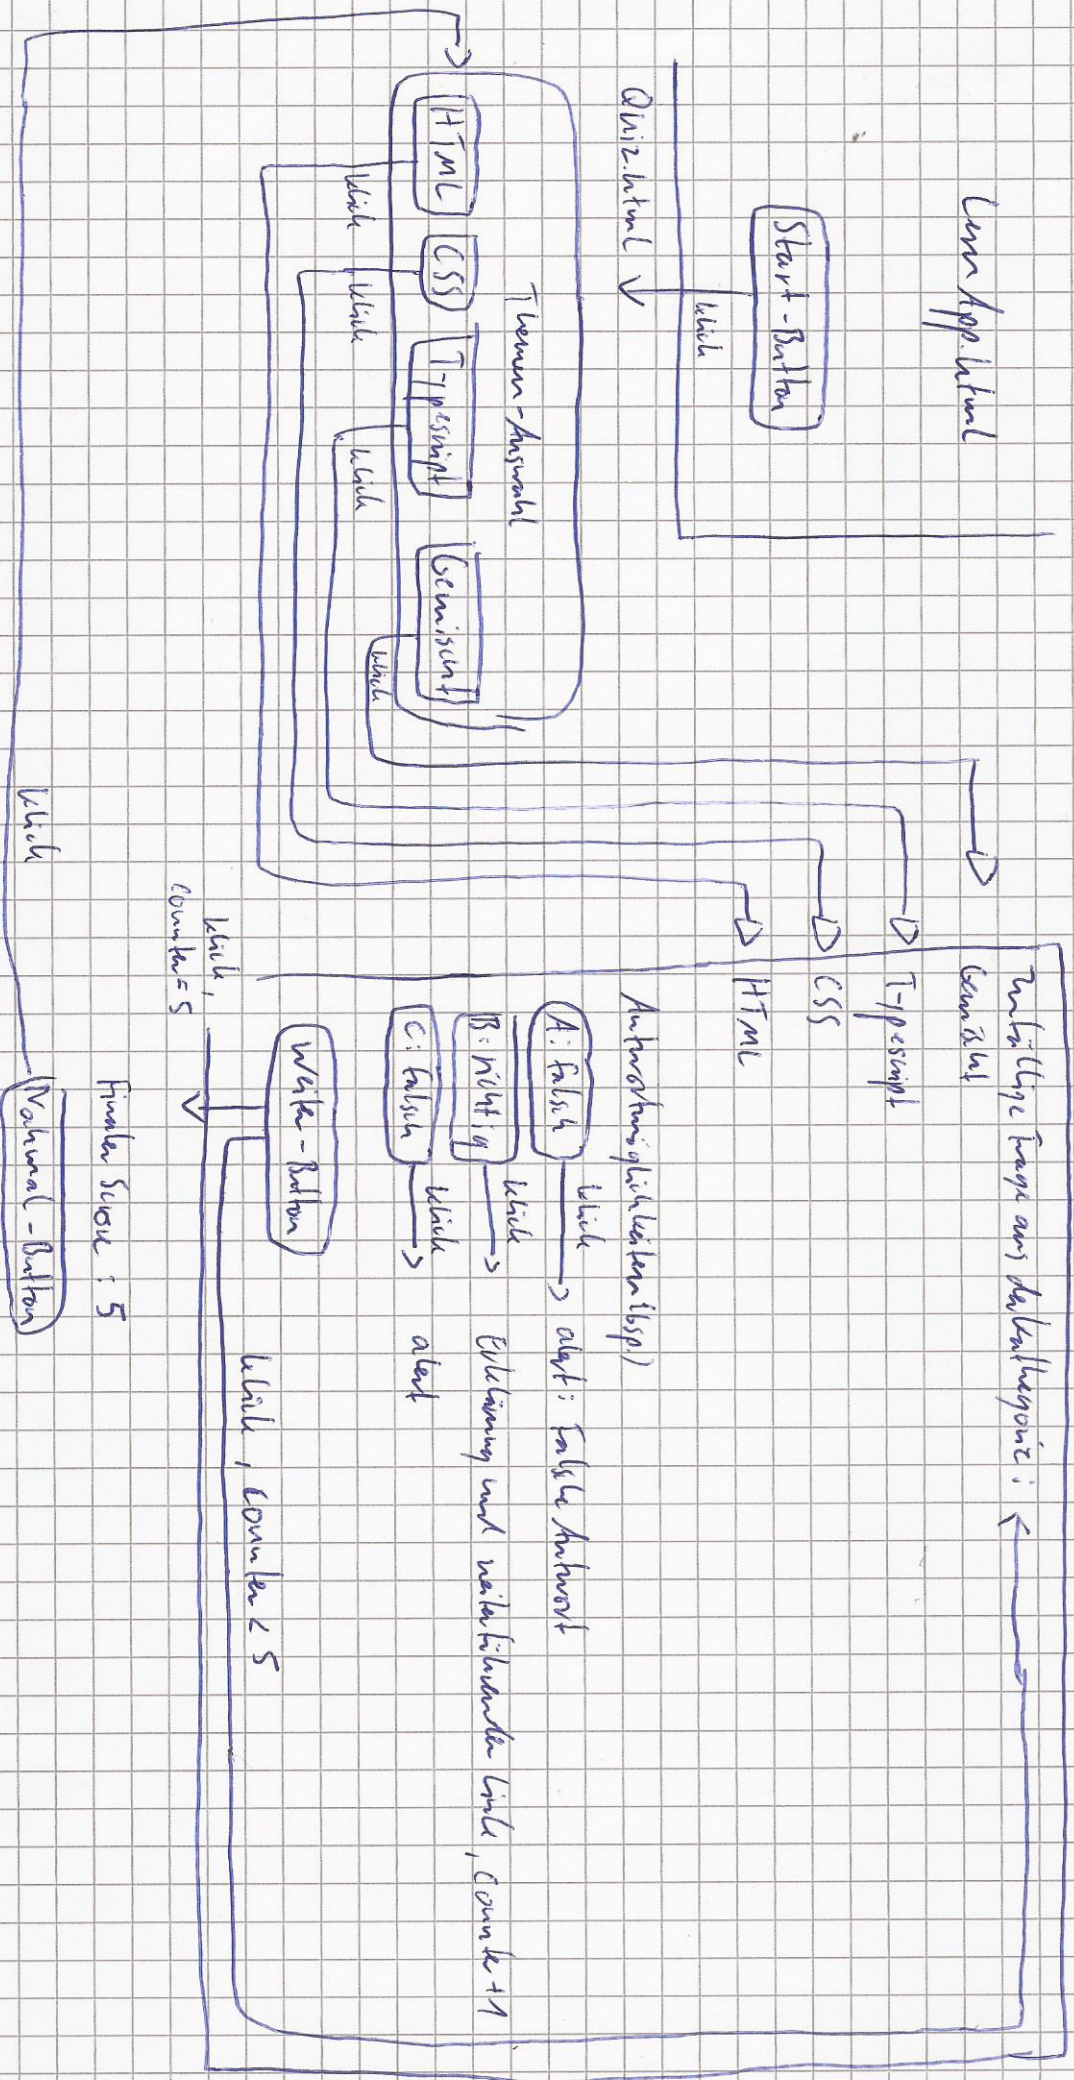 LernApp.html
Start-Button
klick
Quiz.html
Themen-Auswahl
HTML
CSS
Typescript
Gemischt
klick
klick
klick
klick
Zufällige Frage aus der Kathegorie:
Gemischt
Typescript
CSS
HTML
Antwortmöglichkeiten (bsp.)
A: falsch
klick
alert: Falsche Antwort
B: richtig
klick
Erklärung und weiterführender Link, counter +1
C: falsch
klick
alert
Weiter-Button
klick, counter < 5
klick,
counter = 5
Finaler Score: 5
Nochmal-Button
klick